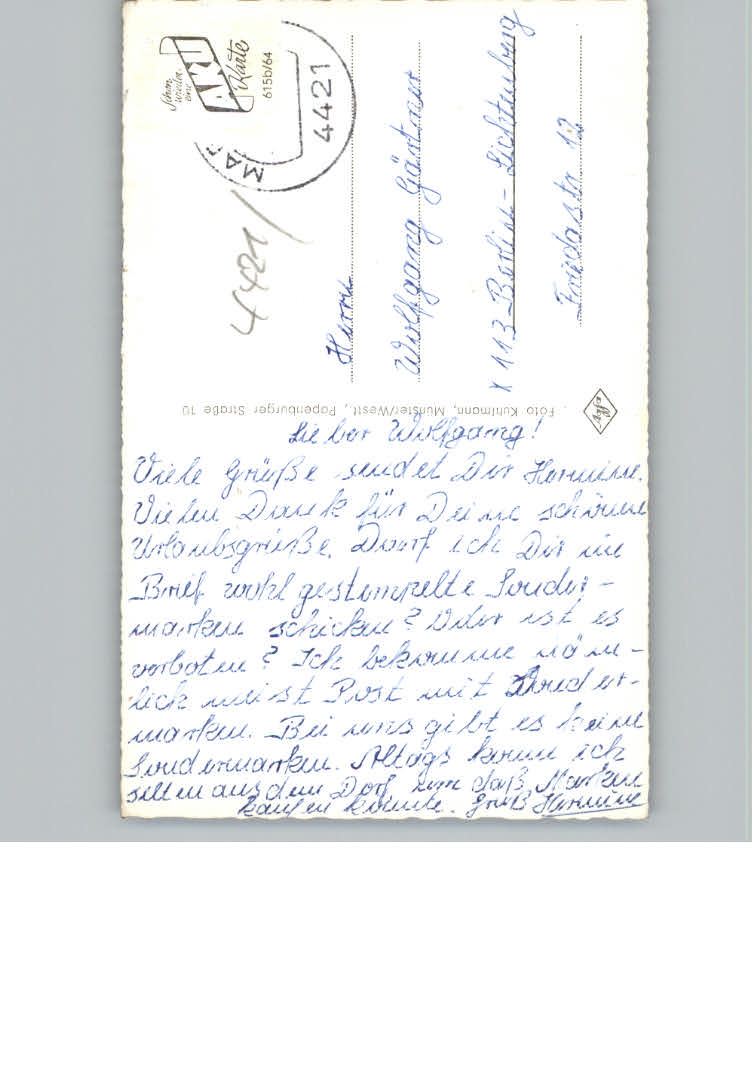 Schon
wieder
eine
AKU
Karte
615b/64
4421
MAR
4421/
Herrn
Wolfgang Gärtner
X 113-Berlin-Lichtenberg
Friedastr 12
Foto Kuhlmann, Münster/Westf., Papenburger Straße 10
Agfa
Lieber Wolfgang!
Viele Grüße sendet Dir Hermine.
Vielen Dank für Deine schöne
Urlaubsgrüße. Darf ich Dir im
Brief wohl gestempelte Sonder-
marken schicken? Oder ist es
verboten? Ich bekomme näm-
lich meist Post mit Sonder-
marken. Bei uns gibt es keine
Sondermarken. Alltags komm ich
selten aus dem Dorf, um daß Marken
kaufen könnte. Gruß Hermine